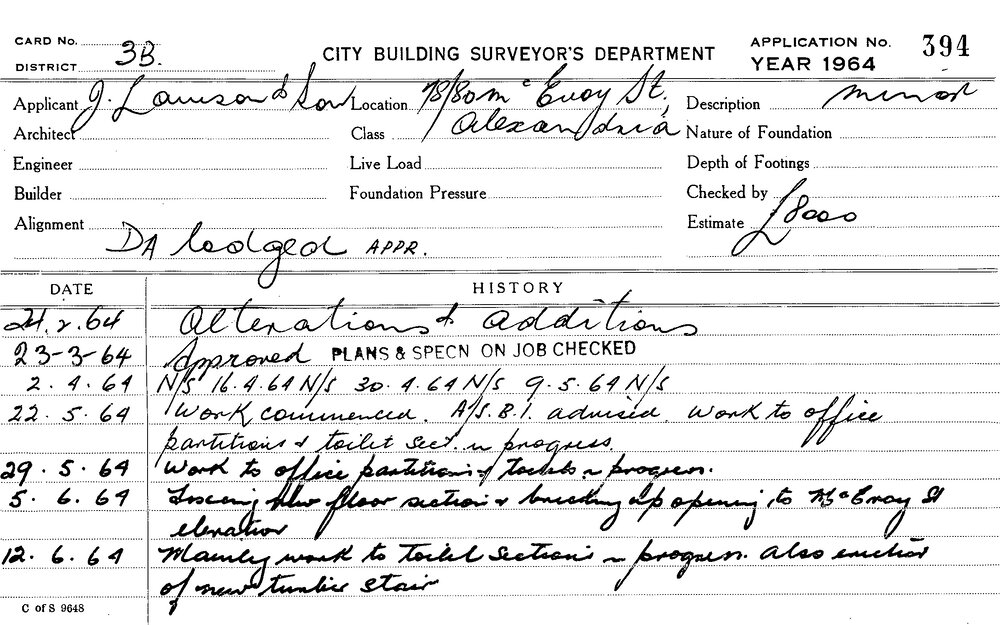 CARD No. CITY BUILDING SURVEYOR'S DEPARTMENT APPLICATION No. 394
DISTRICT 3B. YEAR 1964
Applicant J. & Son Location 78/80 McEvoy St, Description minor
Architect Class Alexandria Nature of Foundation
Engineer Live Load Depth of Footings
Builder Foundation Pressure Checked by
Alignment Estimate £8000
DA lodged APPR.
DATE HISTORY
24.2.64 Alterations & additions
23-3-64 Approved PLANS & SPECN ON JOB CHECKED
2.4.64 N/S 16.4.64 N/S 30.4.64 N/S 9.5.64 N/S
22.5.64 Work commenced. A/S.B.I. advised. Work to office
partitions & toilet sect. in progress.
29.5.64 Work to office partitions & toilets in progress.
5.6.64 new floor section & bricking up opening to McEvoy St
elevation
12.6.64 Mainly work to toilet section in progress. Also erection
of new timber stair
C of S 9648